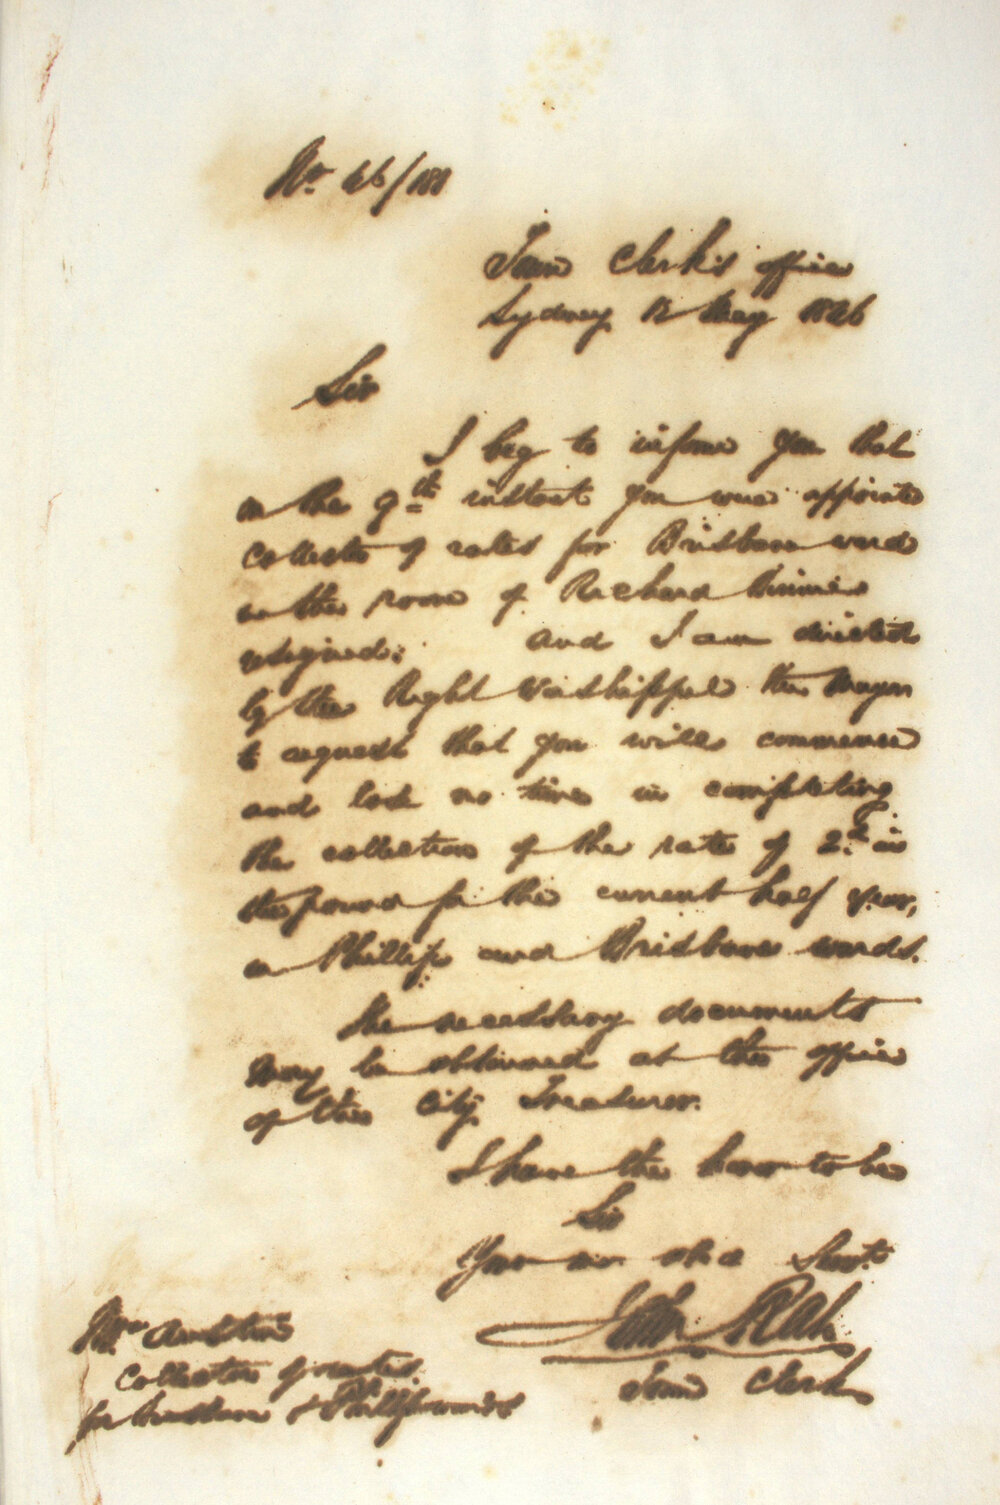 No. 46/188
Town Clerk's office
Sydney 12 May 1846
Sir
I beg to inform you that
on the 9th instant you were appointed
Collector of rates for Brisbane ward
in the room of Richard
resigned; and I am directed
by the Right Worshipful the Mayor
to request that you will commence
and lose no time in completing
the collection of the rate of 2d in
the pound for the current half year,
in Phillip and Brisbane wards.
The necessary documents
may be obtained at the office
of the City Treasurer.
I have the honor to be
Sir
Your mo obed Servt.
Town Clerk
Mr Austin
Collector of rates
for Brisbane & Phillip wards